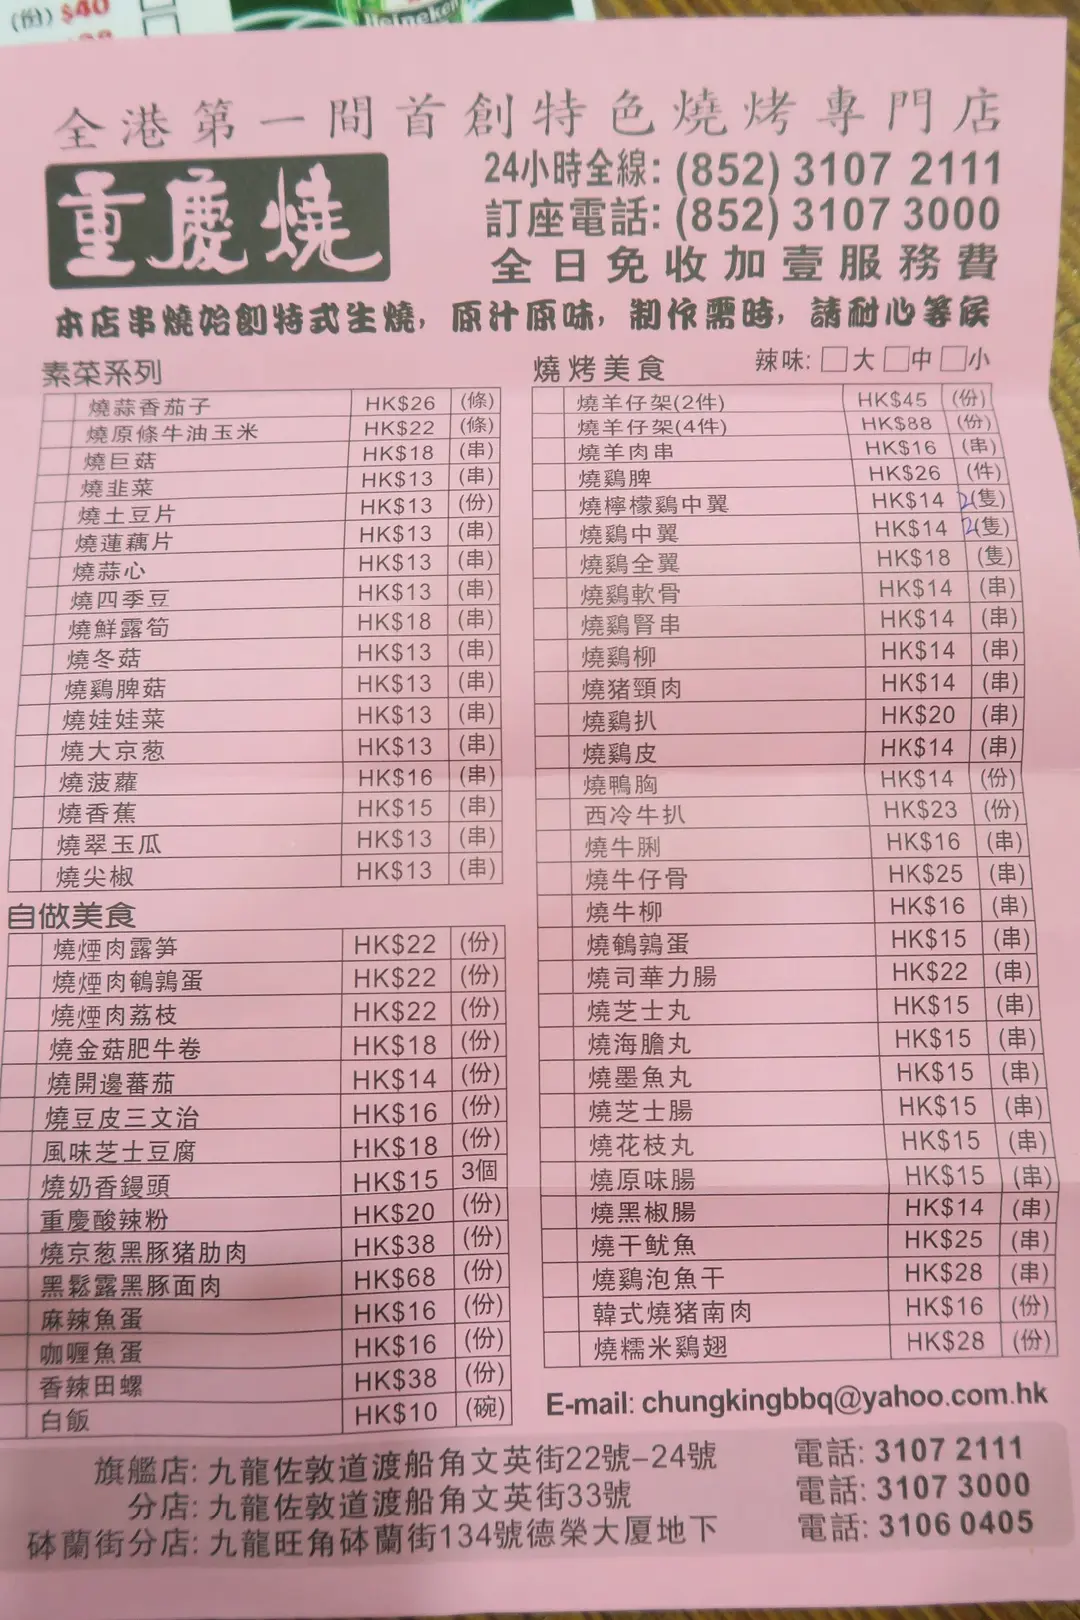 (份) $40
Heineken
全港第一間首創特色燒烤專門店
重慶燒
24小時全線: (852) 3107 2111
訂座電話: (852) 3107 3000
全日免收加壹服務費
本店串燒始創特式生燒, 原汁原味, 制作需時, 請耐心等侯
素菜系列
燒蒜香茄子 HK$26 (條)
燒原條牛油玉米 HK$22 (條)
燒巨菇 HK$18 (串)
燒韭菜 HK$13 (串)
燒土豆片 HK$13 (份)
燒蓮藕片 HK$13 (串)
燒蒜心 HK$13 (串)
燒四季豆 HK$13 (串)
燒鮮露筍 HK$18 (串)
燒冬菇 HK$13 (串)
燒鷄脾菇 HK$13 (串)
燒娃娃菜 HK$13 (串)
燒大京葱 HK$13 (串)
燒菠蘿 HK$16 (串)
燒香蕉 HK$15 (串)
燒翠玉瓜 HK$13 (串)
燒尖椒 HK$13 (串)
自做美食
燒煙肉露笋 HK$22 (份)
燒煙肉鵪鶉蛋 HK$22 (份)
燒煙肉荔枝 HK$22 (份)
燒金菇肥牛卷 HK$18 (份)
燒開邊蕃茄 HK$14 (份)
燒豆皮三文治 HK$16 (份)
風味芝士豆腐 HK$18 (份)
燒奶香饅頭 HK$15 3個
重慶酸辣粉 HK$20 (份)
燒京葱黑豚猪肋肉 HK$38 (份)
黑鬆露黑豚面肉 HK$68 (份)
麻辣魚蛋 HK$16 (份)
咖喱魚蛋 HK$16 (份)
香辣田螺 HK$38 (份)
白飯 HK$10 (碗)
燒烤美食 辣味: □大 □中 □小
燒羊仔架(2件) HK$45 (份)
燒羊仔架(4件) HK$88 (份)
燒羊肉串 HK$16 (串)
燒鷄脾 HK$26 (件)
燒檸檬鷄中翼 HK$14 2(隻)
燒鷄中翼 HK$14 2(隻)
燒鷄全翼 HK$18 (隻)
燒鷄軟骨 HK$14 (串)
燒鷄腎串 HK$14 (串)
燒鷄柳 HK$14 (串)
燒猪頸肉 HK$14 (串)
燒鷄扒 HK$20 (串)
燒鷄皮 HK$14 (串)
燒鴨胸 HK$14 (份)
西冷牛扒 HK$23 (份)
燒牛脷 HK$16 (串)
燒牛仔骨 HK$25 (串)
燒牛柳 HK$16 (串)
燒鵪鶉蛋 HK$15 (串)
燒司華力腸 HK$22 (串)
燒芝士丸 HK$15 (串)
燒海膽丸 HK$15 (串)
燒墨魚丸 HK$15 (串)
燒芝士腸 HK$15 (串)
燒花枝丸 HK$15 (串)
燒原味腸 HK$15 (串)
燒黑椒腸 HK$14 (串)
燒干魷魚 HK$25 (串)
燒鷄泡魚干 HK$28 (串)
韓式燒猪南肉 HK$16 (份)
燒糯米鷄翅 HK$28 (份)
E-mail: chungkingbbq@yahoo.com.hk
旗艦店: 九龍佐敦道渡船角文英街22號–24號 電話: 3107 2111
分店: 九龍佐敦道渡船角文英街33號 電話: 3107 3000
砵蘭街分店: 九龍旺角砵蘭街134號德榮大厦地下 電話: 3106 0405